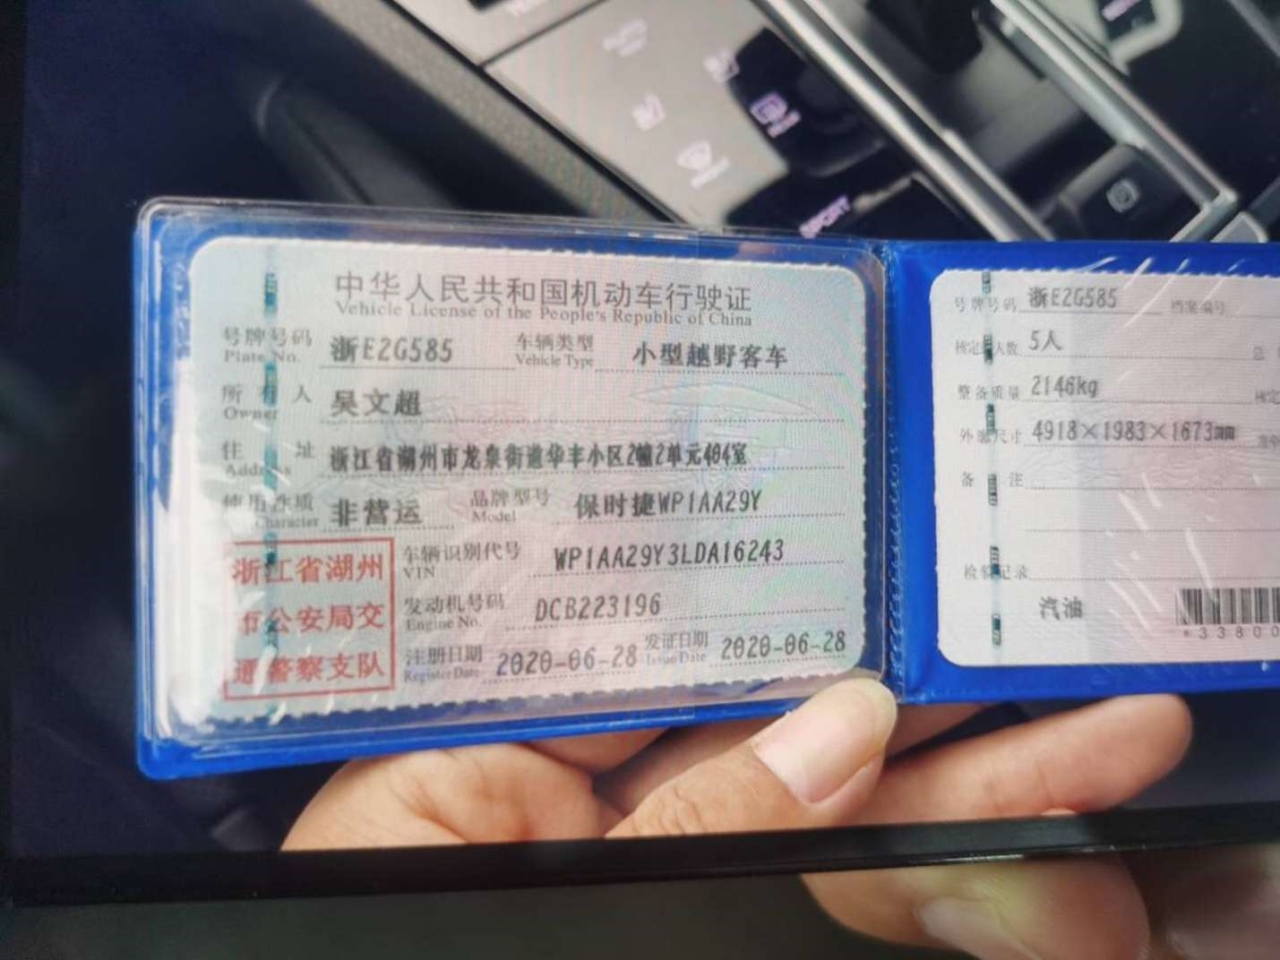 中华人民共和国机动车行驶证
Vehicle License of the People's Republic of China
号牌号码 浙E2G585 车辆类型 小型越野客车
Plate No. Vehicle Type
所有人 吴文超
Owner
住址 浙江省湖州市龙泉街道华丰小区2幢2单元404室
Address
使用性质 非营运 品牌型号 保时捷WP1AA29Y
Character Model
车辆识别代号 WP1AA29Y3LDA16243
VIN
发动机号码 DCB223196
Engine No.
注册日期 2020-06-28 发证日期 2020-06-28
Register Date Issue Date
浙江省湖州
市公安局交
通警察支队
号牌号码 浙E2G585 档案编号
核定人数 5人
整备质量 2146kg
外廓尺寸 4918×1983×1673mm
备注
检验记录
汽油
33800
SPORT